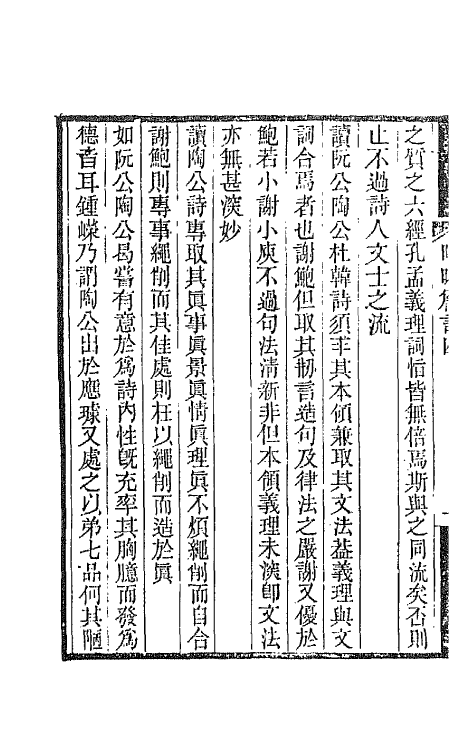 之質之六經孔孟義理詞恉皆無倍焉斯與之同流矣否則
止不過詩人文士之流
讀阮公陶公杜韓詩須求其本領兼取其文法葢義理與文
詞合焉者也謝鮑但取其刱言造句及律法之嚴謝又優於
鮑若小謝小庾不過句法清新非但本領義理未深卽文法
亦無甚深妙
讀陶公詩專取其眞事眞景眞情眞理眞不煩繩削而自合
謝鮑則專事繩削而其佳處則在以繩削而造於眞
如阮公陶公曷嘗有意於爲詩內性旣充率其胸臆而發爲
德音耳鍾嶸乃謂陶公出於應璩又處之以弟七品何其陋